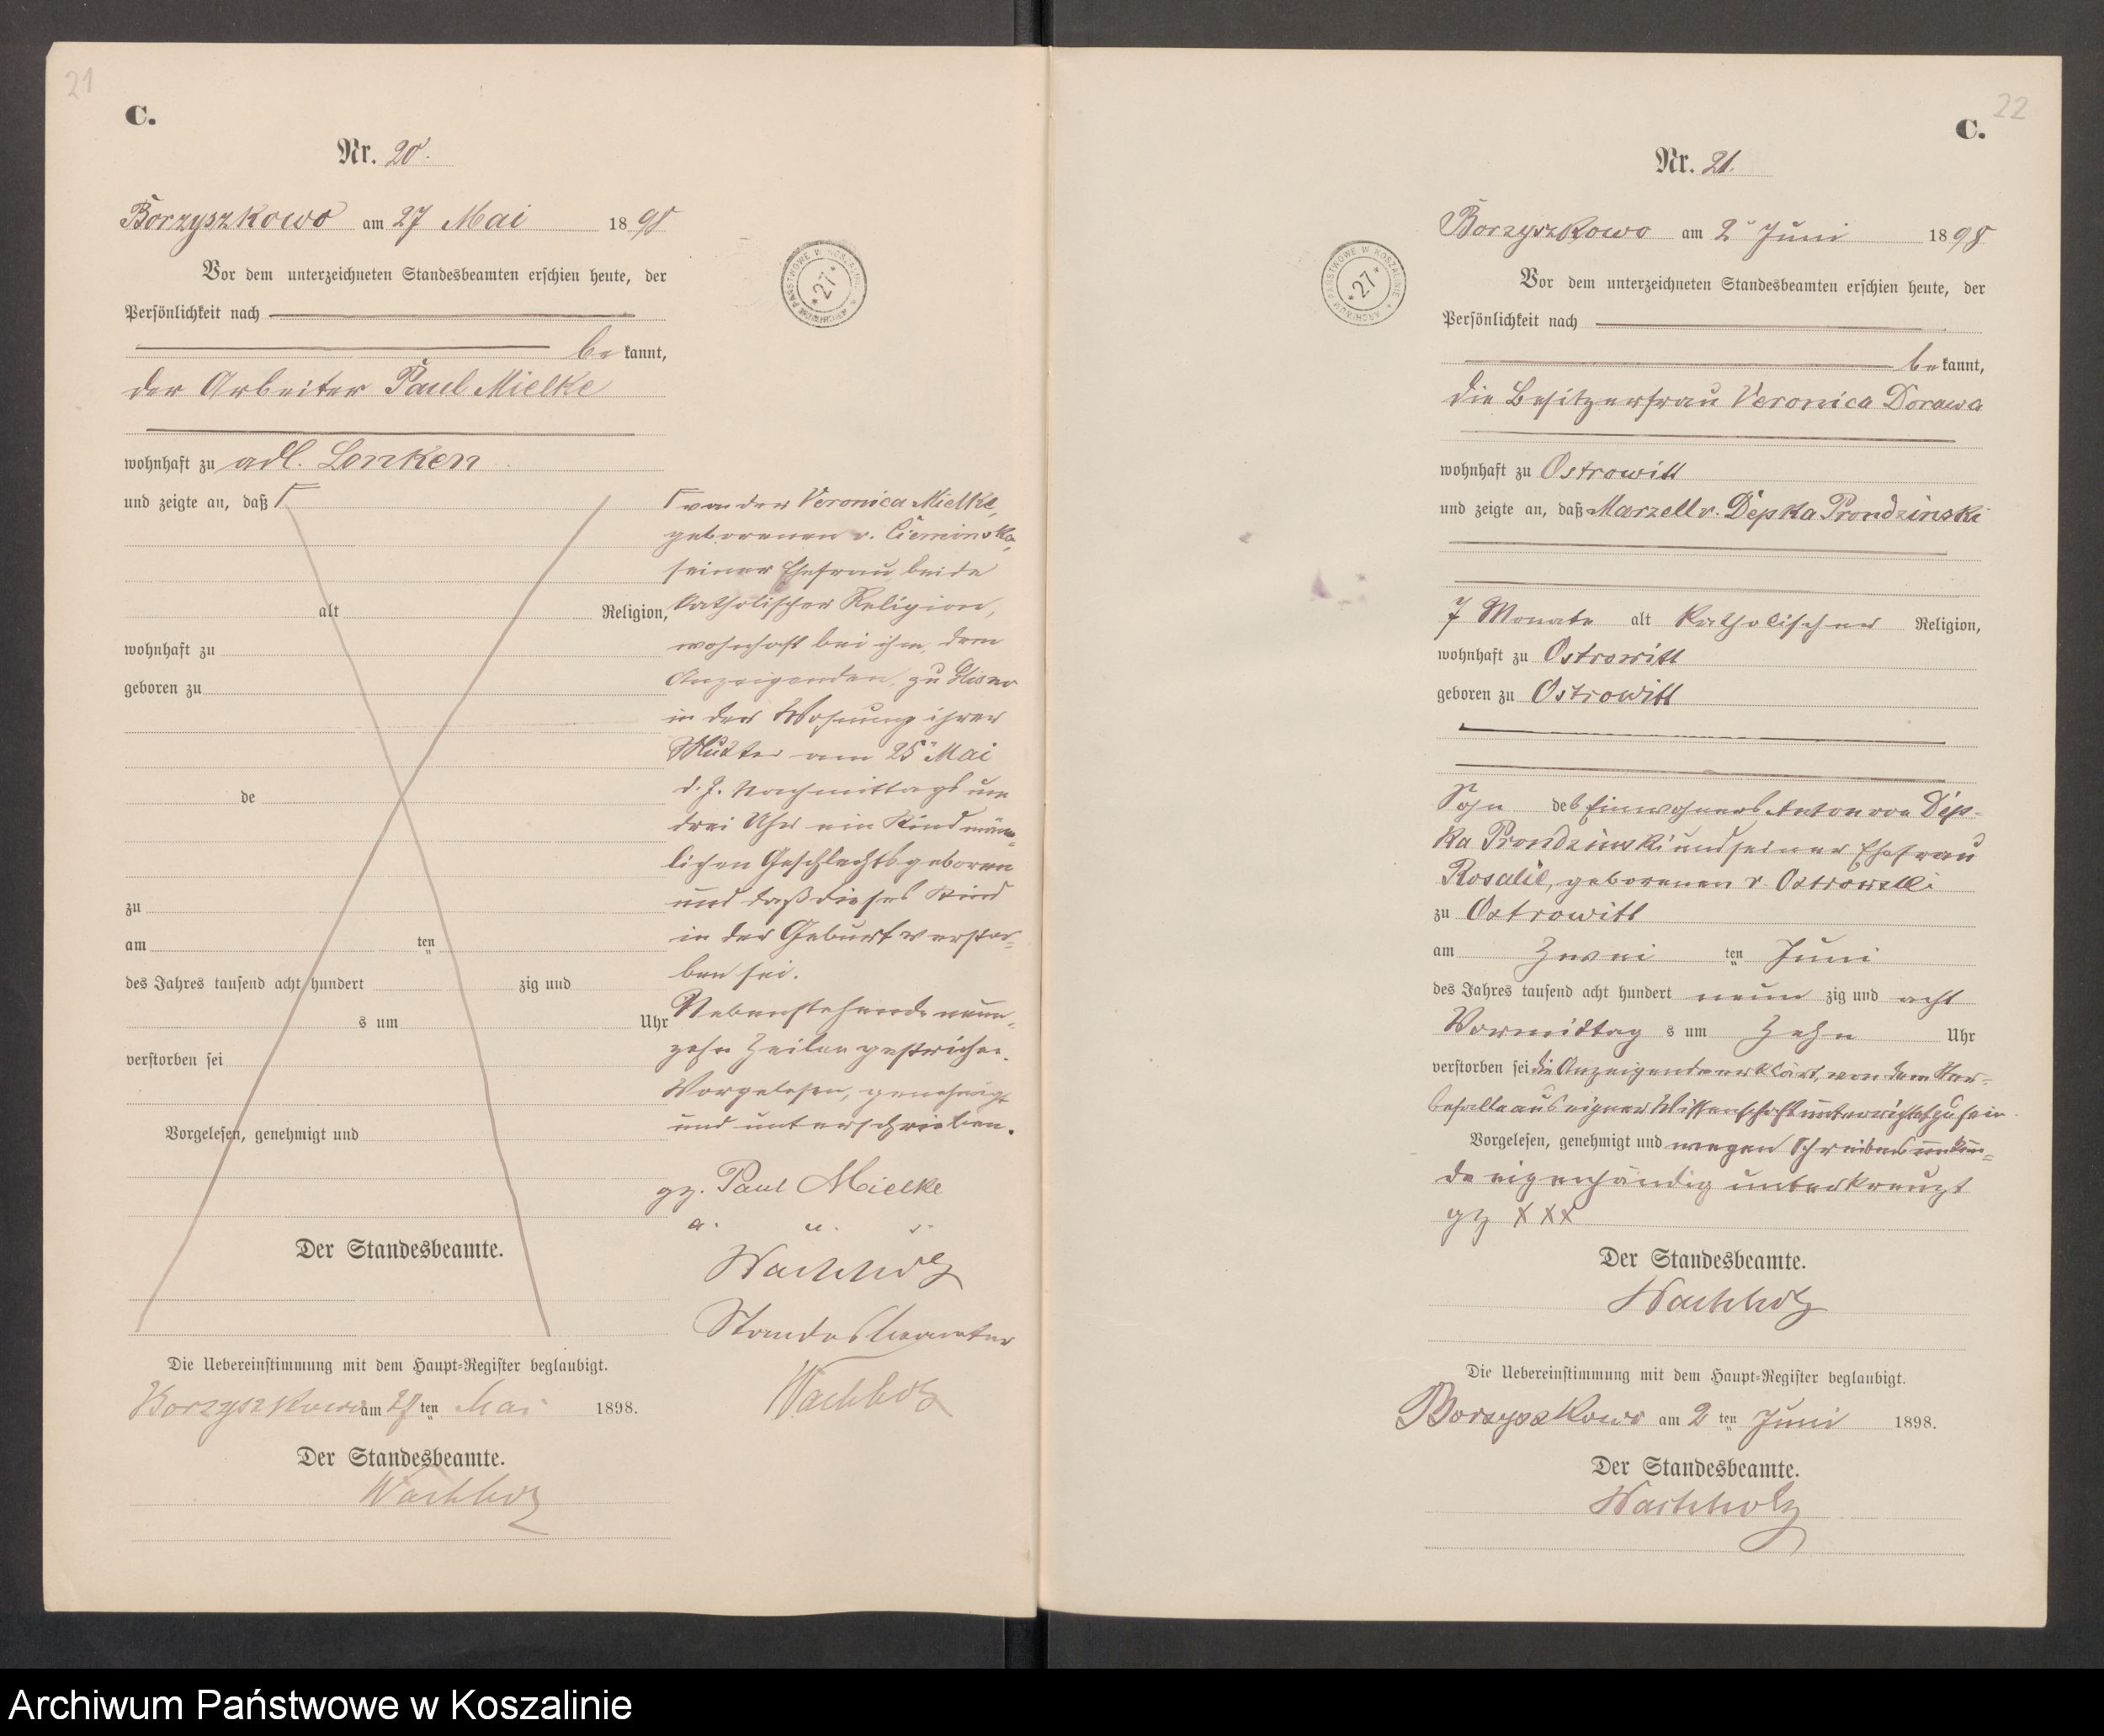 21
C.
Nr. 20.
Borzyszkowo am 27 Mai 1898
Vor dem unterzeichneten Standesbeamten erschien heute, der
Persönlichkeit nach
be kannt,
der Arbeiter Paul Mielke
wohnhaft zu adl. Lonken
und zeigte an, daß Γ
alt Religion,
wohnhaft zu
geboren zu
de
zu
am ten
des Jahres tausend acht hundert zig und
s um Uhr
verstorben sei
Vorgelesen, genehmigt und
Der Standesbeamte.
Die Uebereinstimmung mit dem Haupt-Register beglaubigt.
Borzyszkowo am 27 ten Mai 1898.
Der Standesbeamte.
Wachholz
ARCHIWUM PAŃSTWOWE W KOSZALINIE
* 27 *
Γ von der Veronica Mielke,
geborenen v. Cieminska,
seiner Ehefrau beide
katholischer Religion,
wohnhaft bei ihm, dem
Anzeigenden, zu Glisno
in der Wohnung ihrer
Mutter am 25 Mai
d. J. Nachmittags um
drei Uhr ein Kind männ-
lichen Geschlechts geboren
und daß dieses Kind
in der Geburt verstor-
ben sei.
Nebenstehende neun-
zehn Zeilen gestrichen.
Vorgelesen, genehmigt
und unterschrieben.
gz. Paul Mielke
a. u. s.
Wachholz
Standesbeamter
Wachholz
22
C.
Nr. 21.
Borzyszkowo am 2 Juni 1898
Vor dem unterzeichneten Standesbeamten erschien heute, der
Persönlichkeit nach
be kannt,
die Besitzerfrau Veronica Dorawa
wohnhaft zu Ostrowitt
und zeigte an, daß Marzell v. Depka Prondzinski
7 Monate alt katholischer Religion,
wohnhaft zu Ostrowitt
geboren zu Ostrowitt
Sohn des Einwohners Anton von Dep-
ka Prondzinski und seiner Ehefrau
Rosalie, geborenen v. Ostrowski
zu Ostrowitt
am Zwei ten Juni
des Jahres tausend acht hundert neun zig und acht
Vormittag s um Zehn Uhr
verstorben sei die Anzeigende erklärt, von dem Ster-
befalle aus eigner Wissenschaft unterrichtet zu sein.
Vorgelesen, genehmigt und wegen Schreibensunkun-
de eigenhändig unterkreuzt
gz X X X
Der Standesbeamte.
Wachholz
Die Uebereinstimmung mit dem Haupt-Register beglaubigt.
Borzyszkowo am 2 ten Juni 1898.
Der Standesbeamte.
Wachholz
ARCHIWUM PAŃSTWOWE W KOSZALINIE
* 27 *
Archiwum Państwowe w Koszalinie